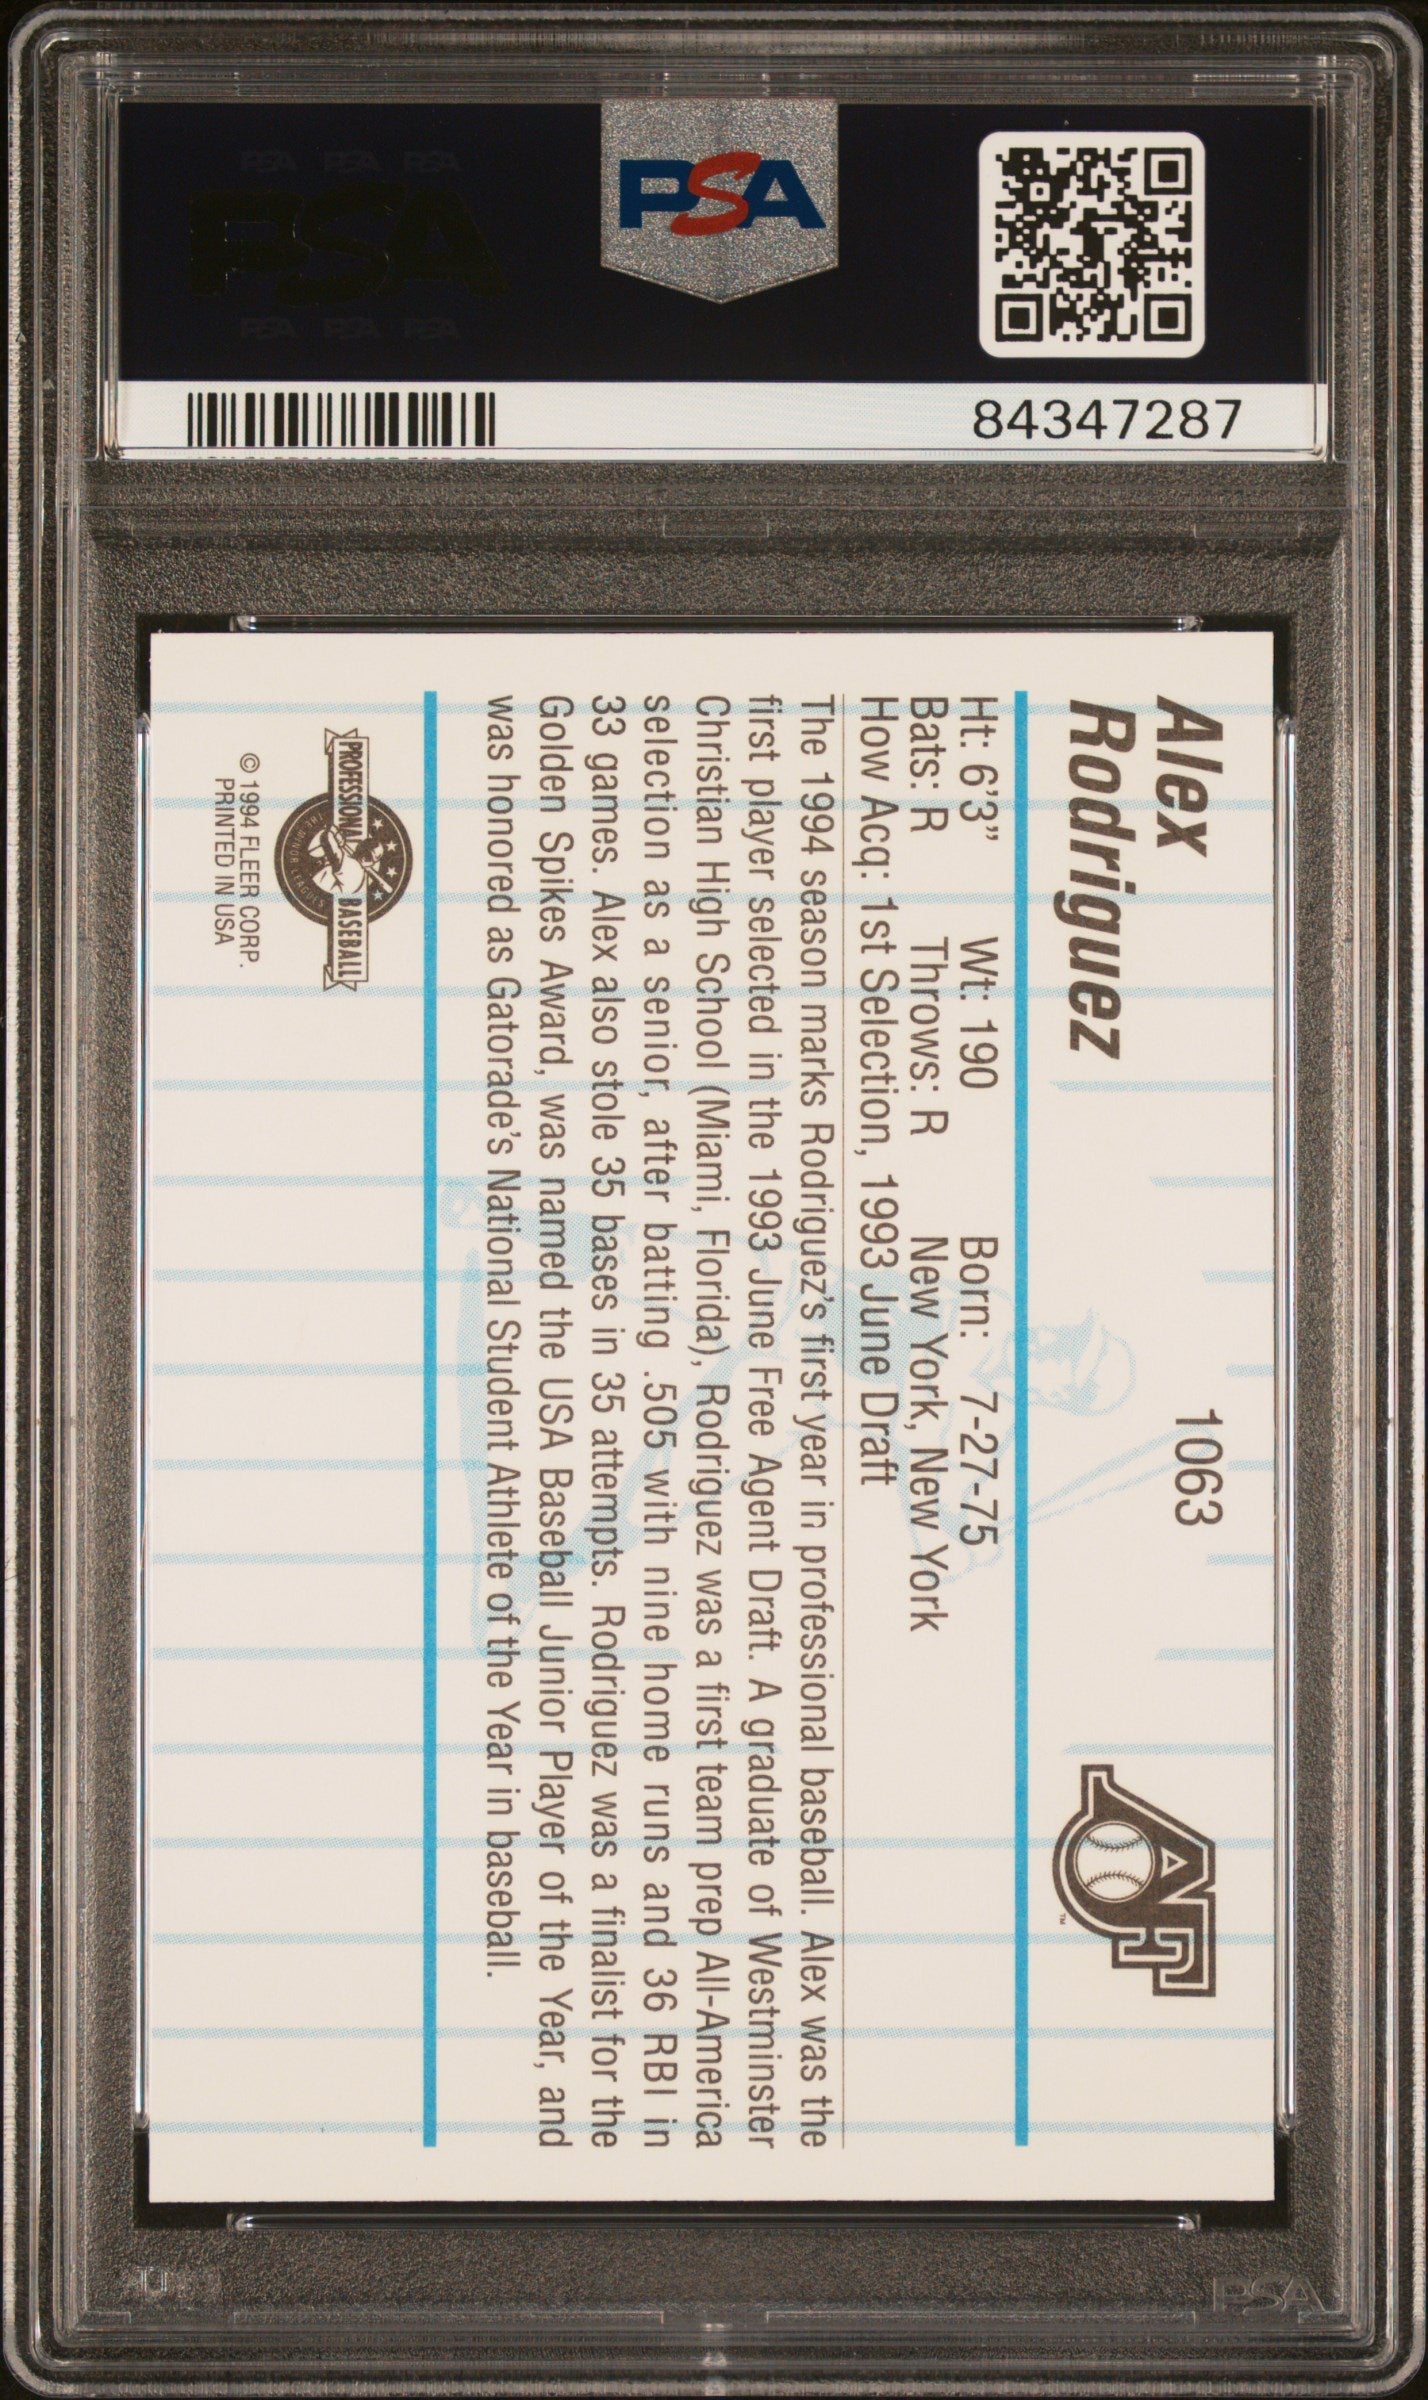 PSA PSA PSA
PSA
PSA PSA PSA
PSA
84347287
Alex
Rodriguez
1063
Ht: 6'3” Wt: 190 Born: 7-27-75
Bats: R Throws: R New York, New York
How Acq: 1st Selection, 1993 June Draft
The 1994 season marks Rodriguez's first year in professional baseball. Alex was the
first player selected in the 1993 June Free Agent Draft. A graduate of Westminster
Christian High School (Miami, Florida), Rodriguez was a first team prep All-America
selection as a senior, after batting .505 with nine home runs and 36 RBI in
33 games. Alex also stole 35 bases in 35 attempts. Rodriguez was a finalist for the
Golden Spikes Award, was named the USA Baseball Junior Player of the Year, and
was honored as Gatorade's National Student Athlete of the Year in baseball.
PROFESSIONAL BASEBALL
THE MINOR LEAGUES
© 1994 FLEER CORP.
PRINTED IN USA
A
TM
PSA